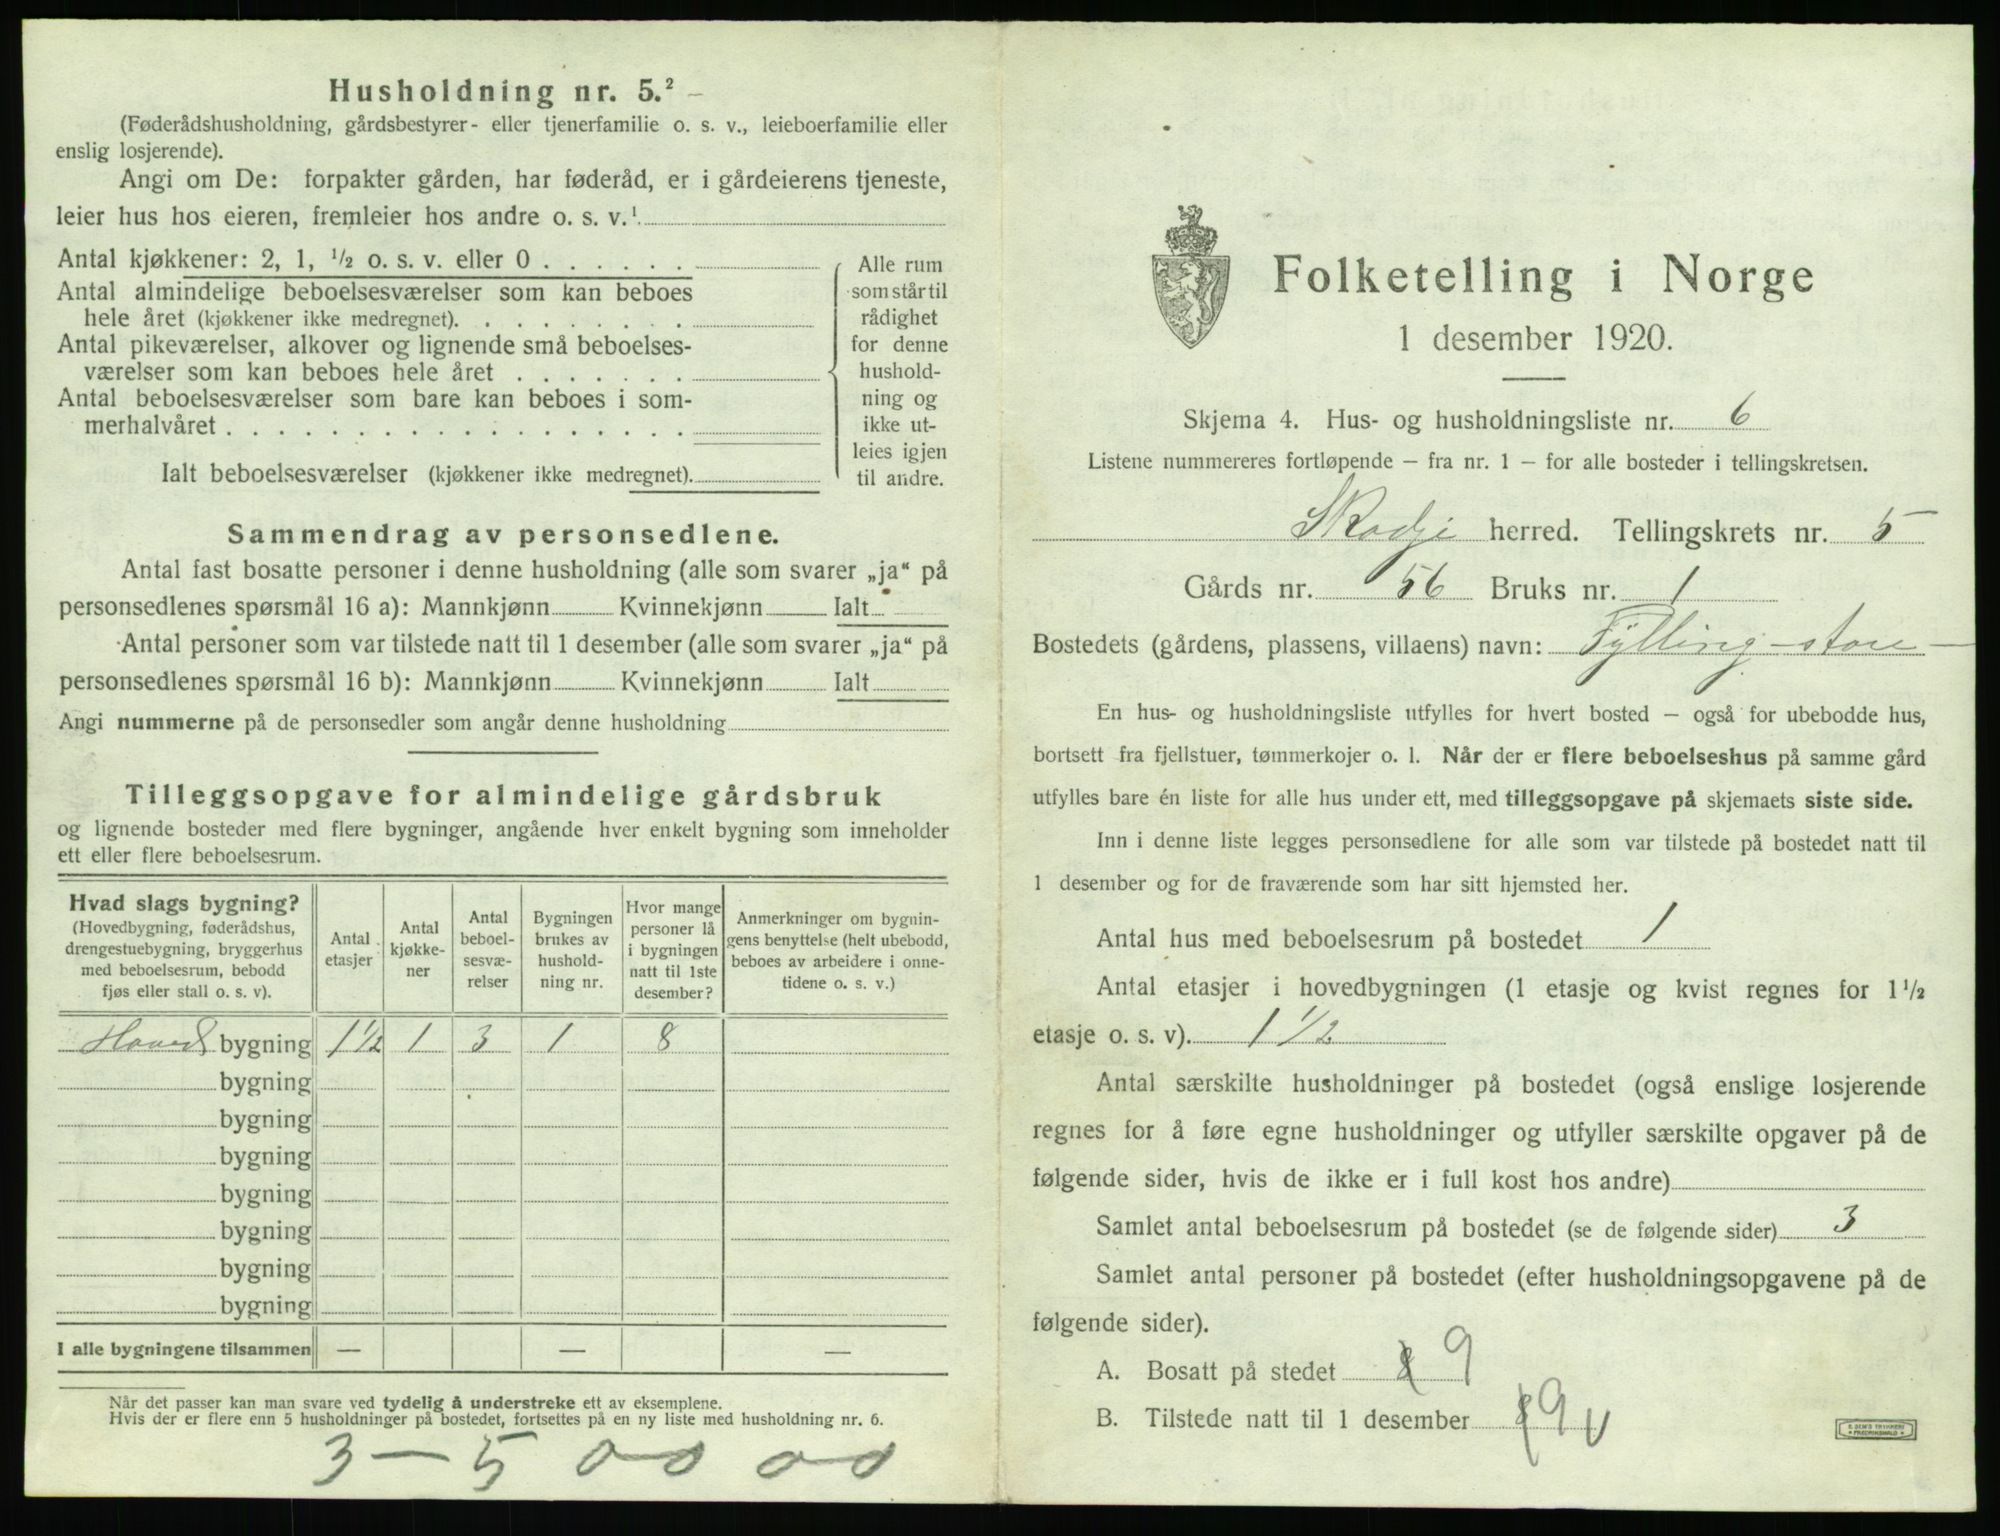 Husholdning nr. 5.²
(Føderådshusholdning, gårdsbestyrer- eller tjenerfamilie o. s. v., leieboerfamilie eller
enslig losjerende).
Angi om De: forpakter gården, har føderåd, er i gårdeierens tjeneste,
leier hus hos eieren, fremleier hos andre o. s. v.¹
Antal kjøkkener: 2, 1, ½ o. s. v. eller 0
Antal almindelige beboelsesværelser som kan beboes
hele året (kjøkkener ikke medregnet).
Antal pikeværelser, alkover og lignende små beboelses-
værelser som kan beboes hele året
Antal beboelsesværelser som bare kan beboes i som-
merhalvåret
Ialt beboelsesværelser (kjøkkener ikke medregnet)
Alle rum
som står til
rådighet
for denne
hushold-
ning og
ikke ut-
leies igjen
til andre.
Sammendrag av personsedlene.
Antal fast bosatte personer i denne husholdning (alle som svarer „ja“ på
personsedlenes spørsmål 16 a): Mannkjønn Kvinnekjønn Ialt
Antal personer som var tilstede natt til 1 desember (alle som svarer „ja“ på
personsedlenes spørsmål 16 b): Mannkjønn Kvinnekjønn Ialt
Angi nummerne på de personsedler som angår denne husholdning
Tilleggsopgave for almindelige gårdsbruk
og lignende bosteder med flere bygninger, angående hver enkelt bygning som inneholder
ett eller flere beboelsesrum.
Hvad slags bygning?
(Hovedbygning, føderådshus,
drengestuebygning, bryggerhus
med beboelsesrum, bebodd
fjøs eller stall o. s. v).
Antal
etasjer
Antal
kjøkke-
ner
Antal
beboel-
sesvæ-
relser
Bygningen
brukes av
hushold-
ning nr.
Hvor mange
personer lå
i bygningen
natt til 1ste
desember?
Anmerkninger om bygnin-
gens benyttelse (helt ubebodd,
beboes av arbeidere i onne-
tidene o. s. v.)
Hoved bygning 1½ 1 3 1 8
bygning
bygning
bygning
bygning
bygning
bygning
bygning
I alle bygningene tilsammen — — —
Når det passer kan man svare ved tydelig å understreke ett av eksemplene.
Hvis der er flere enn 5 husholdninger på bostedet, fortsettes på en ny liste med husholdning nr. 6.
3 — 5 0-0 0-0
Folketelling i Norge
1 desember 1920.
Skjema 4. Hus- og husholdningsliste nr. 6
Listene nummereres fortløpende — fra nr. 1 — for alle bosteder i tellingskretsen.
Skodje herred. Tellingskrets nr. 5
Gårds nr. 56 Bruks nr. 1
Bostedets (gårdens, plassens, villaens) navn: Fylling-store
En hus- og husholdningsliste utfylles for hvert bosted — også for ubebodde hus,
bortsett fra fjellstuer, tømmerkojer o. l. Når der er flere beboelseshus på samme gård
utfylles bare én liste for alle hus under ett, med tilleggsopgave på skjemaets siste side.
Inn i denne liste legges personsedlene for alle som var tilstede på bostedet natt til
1 desember og for de fraværende som har sitt hjemsted her.
Antal hus med beboelsesrum på bostedet 1
Antal etasjer i hovedbygningen (1 etasje og kvist regnes for 1½
etasje o. s. v). 1½
Antal særskilte husholdninger på bostedet (også enslige losjerende
regnes for å føre egne husholdninger og utfyller særskilte opgaver på de
følgende sider, hvis de ikke er i full kost hos andre)
Samlet antal beboelsesrum på bostedet (se de følgende sider) 3
Samlet antal personer på bostedet (efter husholdningsopgavene på de
følgende sider).
A. Bosatt på stedet 8 9
B. Tilstede natt til 1 desember 8 9